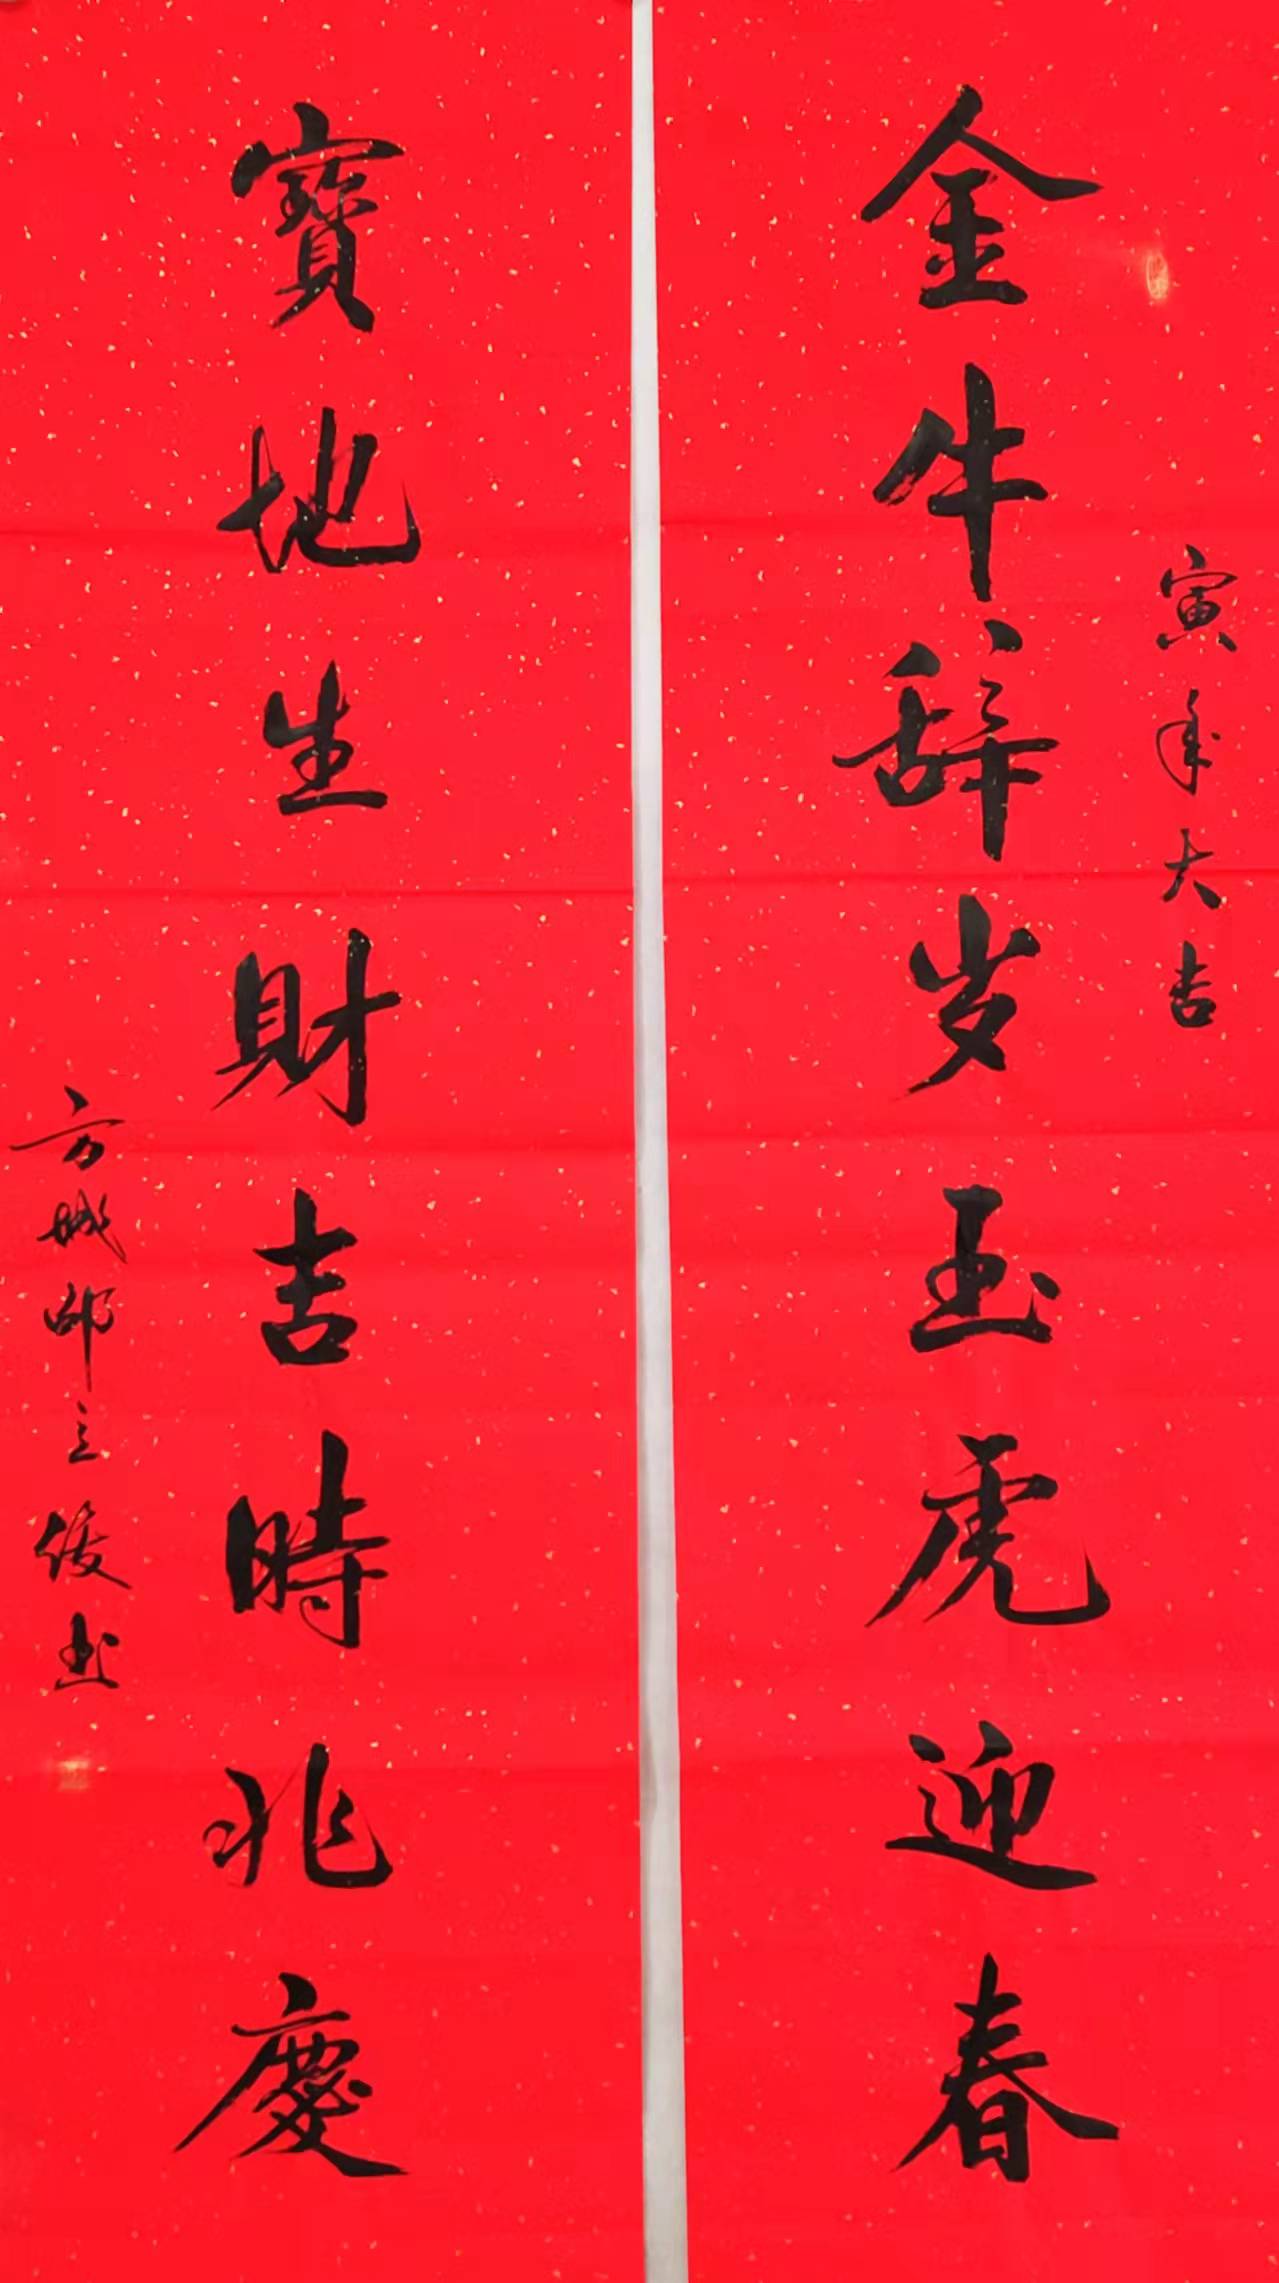 寅年大吉
金牛辞岁玉虎迎春
寳地生財吉時兆慶
方城邱立俊书